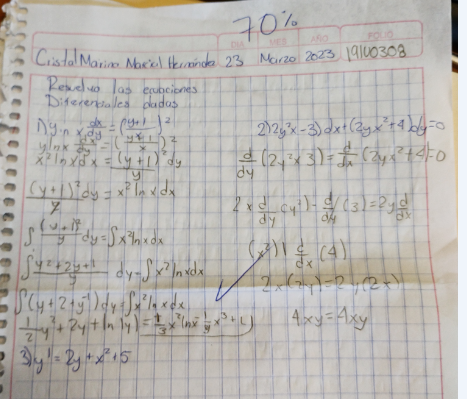 70%
DIA MES AÑO FOLIO
Cristal Marina 23 Marzo 2023 19100303
Resuelva las ecuaciones
Diferenciales dadas
1) y ln x dx/dy = ((y+1)/x)^2
y ln x dx/dy = ((y+1)/x)^2
x^2 ln x dx = (y+1)^2/y dy
(y+1)^2/y dy = x^2 ln x dx
∫ (y+1)^2/y dy = ∫x^2 ln x dx
∫ y^2+2y+1/y dy = ∫x^2 ln x dx
∫(y+2+y^-1) dy = ∫x^2 ln x dx
1/2 y^2 + 2y + ln|y| = 1/3 x^3 ln x - 1/9 x^3 + c
3) y' = 2y + x^2 + 5
2) 2y^2x-3) dx + (2yx^2+4) dy = 0
d/dy (2y^2x3) = d/dx (2yx^2+4) = 0
2x d/dy (y^2) - d/dy (3) = 2y d/dx
(x^2) d/dx (4)
2x(2y) = 2y(2x)
4xy = 4xy